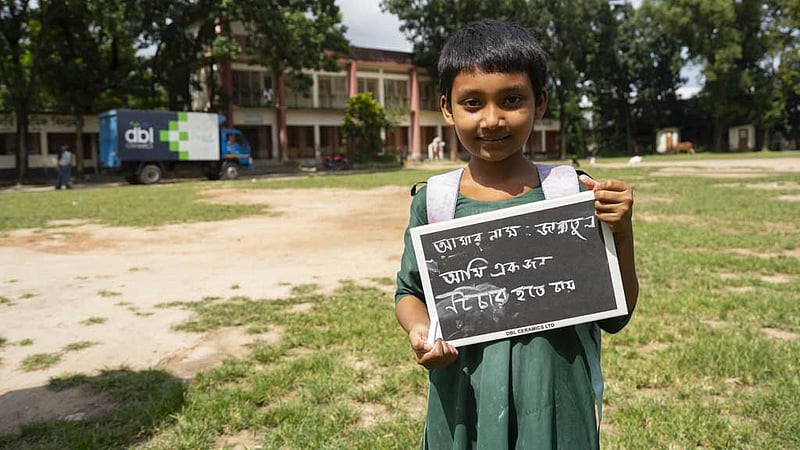 dbl
CERAMICS
আমার নাম : জান্নাতুল
আমি একজন
টিচার হতে চায়
DBL CERAMICS LTD